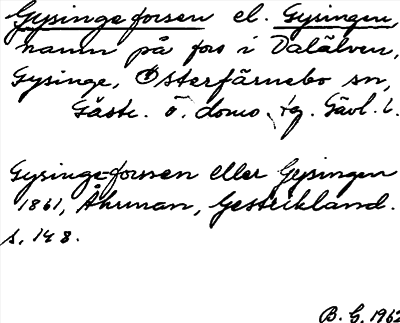 Gysingeforsen el. Gysingen,
namn på fors i Dalälven,
Gysinge, Österfärnebo sn,
Gästr. ö. doms. tg. Gävl. l.
Gysinge-forssen eller Gysingen
1861, Åhrman, Gestrikland.
s. 148.
B. G. 1962